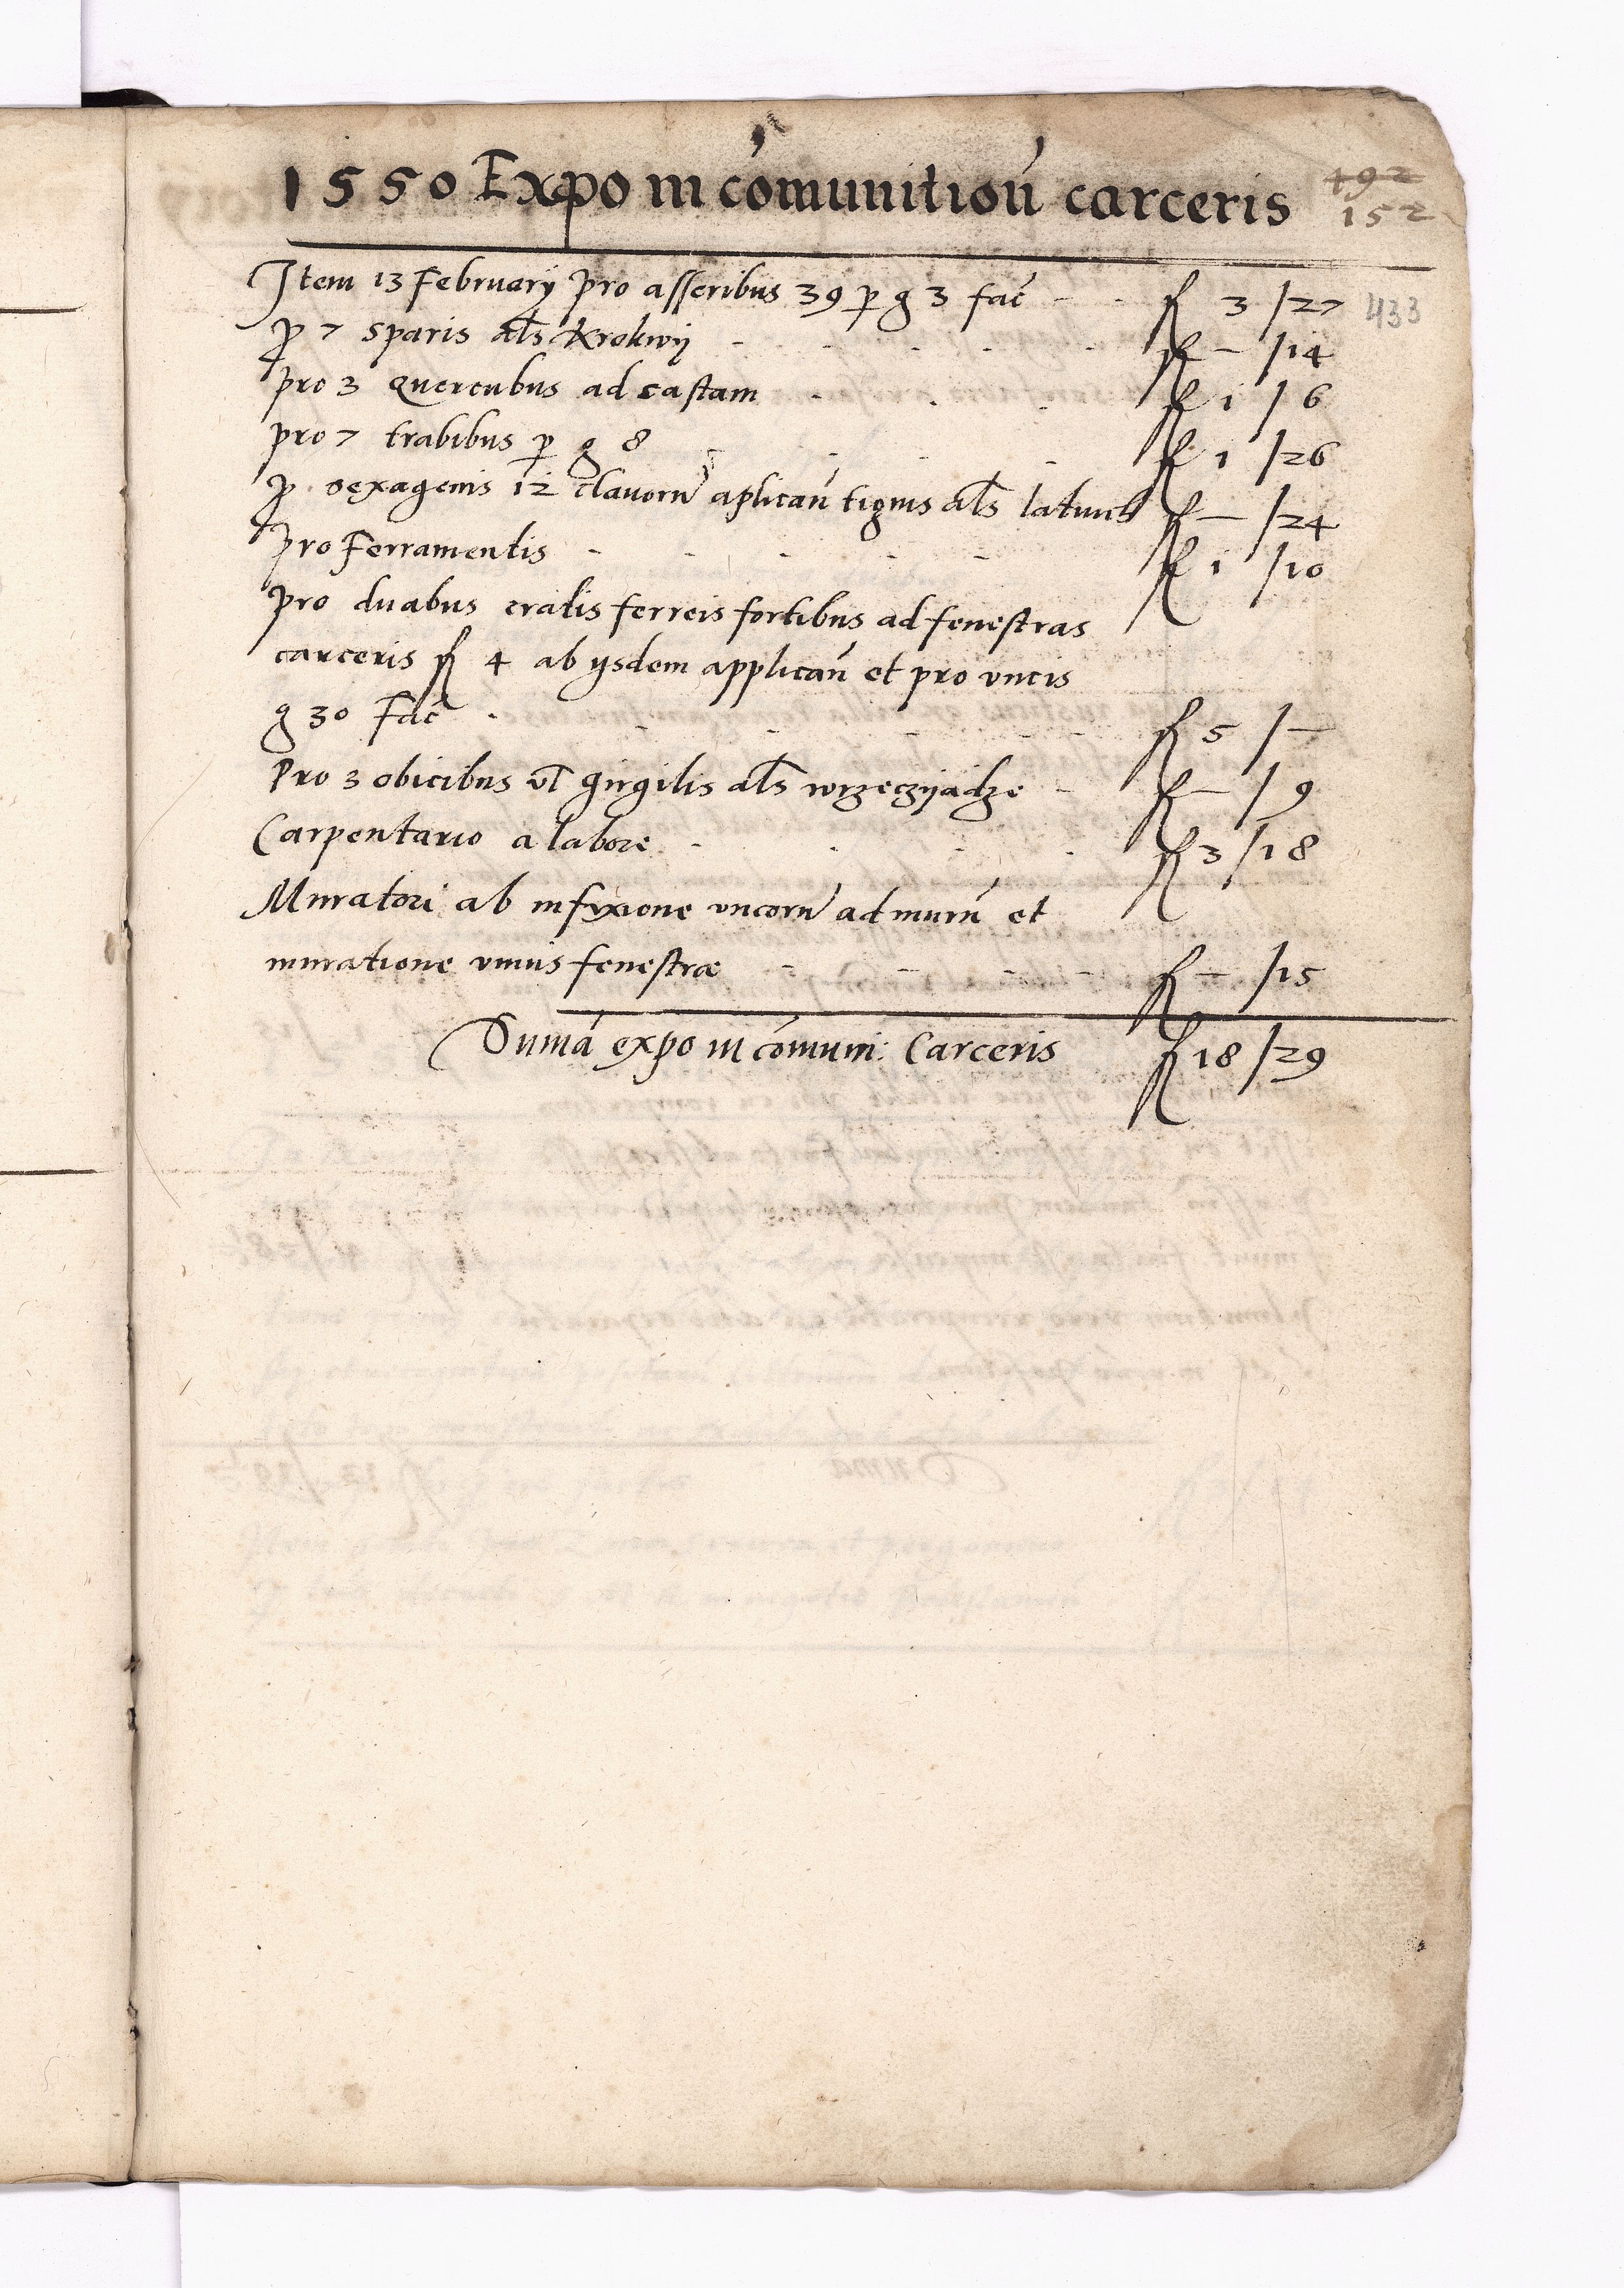 1550 Expo in cómunitioń carceris 492
152
Item 13 February pro asseribus 39 p g 3 fać - - fl 3 /27 433
p 7 sparis als Krokwij - - - - - fl — /14
pro 3 Quercubus ad castam - - - fl 1 / 6
pro 7 trabibus p g 8 - - - - fl 1 /26
p sexagenis 12 clavorŭ aplicań tignis als fl — /24
pro Ferramentis - - - - - fl 1 /10
pro duabus cratis ferreis fortibus ad fenestras
carceris fl 4 ab ysdem applicań et pro uncis
g 30 Fać - - - - - - fl 5 /—
Pro 3 obicibus vl girgilis als wrzeczijadze - fl — / 9
Carpentario a labore - - - - fl 3 /18
Muratori ab infixione uncorŭ ad murŭ et
muratione unius fenestræ - - - - fl — /15
Sumá expo in cómuni: Carceris fl 18 /29